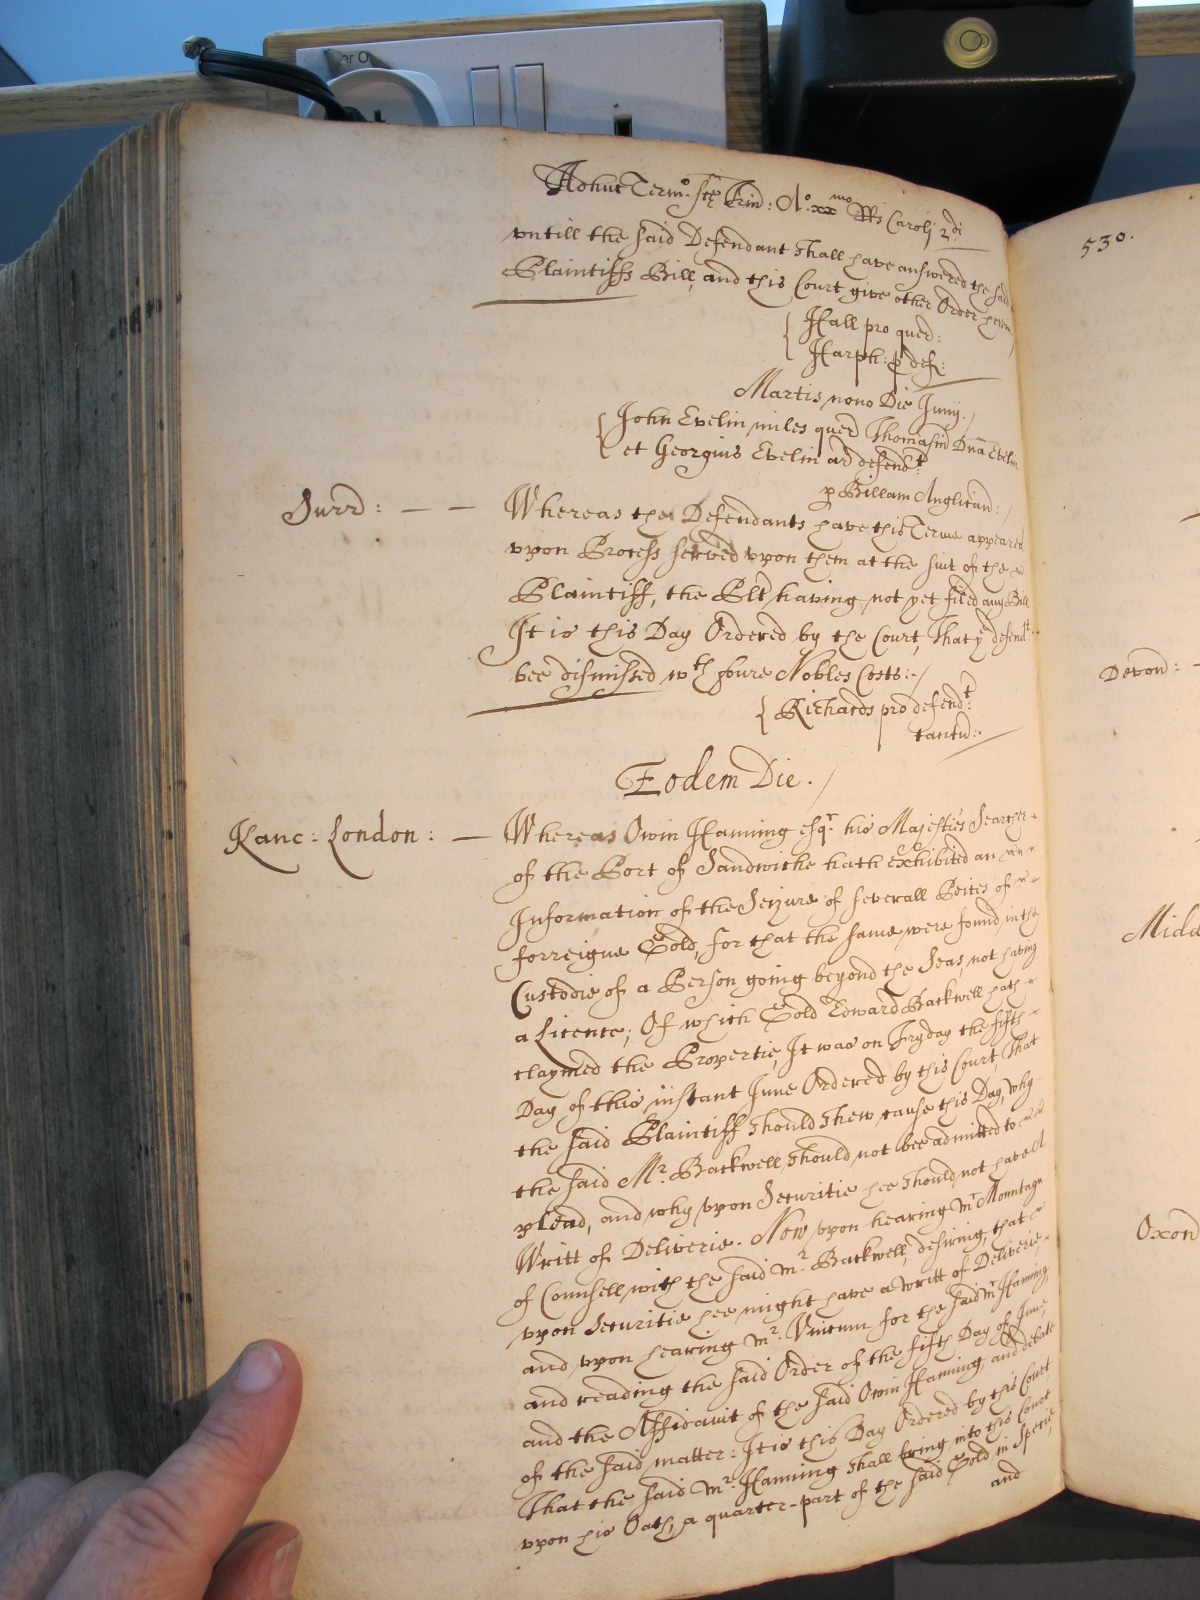 Adhuc Term.o scē Trin: A.o xx.mo RRs Carolj 2.di
530.
untill the said Defendant shall have answered the said
Plaintiffs Bill, and this Court give other Order herein
Hall pro quer:
Harph: p def:
Martis nono Die Junij.
John Evelin miles quer Thomasin Dnā Evelin
et Georgius Evelin ar defend.t
p Billam Anglican:
Surr: — — Whereas the Defendants have this Terme appeared
upon Process served upon them at the suit of the
Plaintiff, the Plt having not yet filed any Bill
It is this Day Ordered by the Court, That y.e defend.t
bee dismissed w.th foure Nobles Costs:-
Richards pro defend.t
tantu:
Eodem Die.
Kanc: London: — Whereas Owin Hanning esq.r his Majesties Searcher
of the Port of Sandwithe hath exhibited an
Information of the Seizure of severall Peices of
forreigne Gold, for that the same were found in the
Custodie of a Person going beyond the Seas, not having
a Licence; Of which Gold Edward Backwell hath
claymed the Propertie, It was on Fryday the fifth
Day of this instant June Ordered by this Court, That
the said Plaintiff should shew cause this Day, why
the said M.r Backwell should not bee admitted to
plead, and why upon Securitie hee should not have A
Writt of Deliverie. Now upon hearing M.r Mountagu
of Counsell with the said M.r Backwell, desiring, that
upon Securitie hee might have a Writt of Deliverie,
and upon hearing M.r for the said M.r Hanning,
and reading the said Order of the fifth Day of June,
and the Affidavit of the said Owin Hanning, and debate
of the said matter: It is this Day Ordered by this Court
That the said M.r Hanning shall bring into this Court
upon his Oath, a quarter-part of the said Gold in Specie,
and
Devon: -
Midd
Oxon